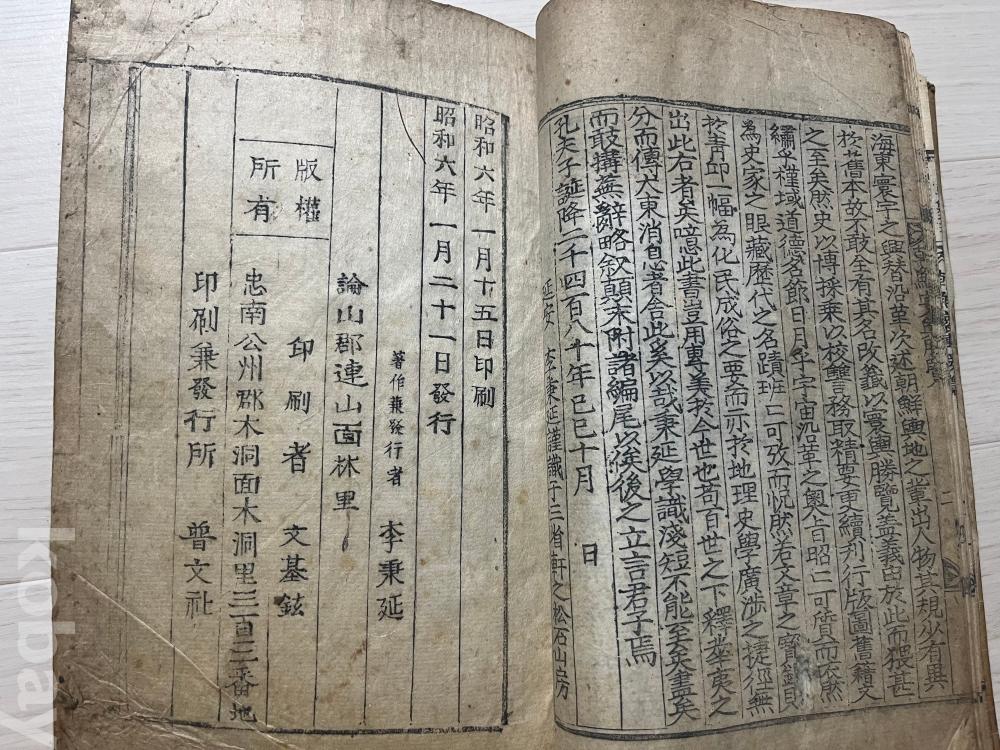 海東寰宇之輿替沿革次述朝鮮輿地之輩出人物其規少有異
於舊本故不敢全有其名改籤以寰輿勝覽盖義由於此而猥甚
之至矣然史以博採乘以校讐務取精要更續刋行版圖舊籍文
繡乎槿域道德名節日月乎宇宙沿革之奧占昭〻可質而森然
為史家之眼藏歷代之名蹟班〻可攷而怳然若文章之寶鏡見
於靑邱一幅為化民成俗之要而示於地理史學廣涉之捷徑無
出此右者矣噫此書豈用專美於今世也苟百世之下釋華英之
分而傳大東消息者舍此矣以哉秉延學識淺短不能至矣盡矣
而敢搆蕪辭略叙顛末附諸編尾以俟後之立言君子焉
孔夫子誕降二千四百八十年己巳十月 日
延安 李秉延謹識于三省軒之松石山房
昭和六年一月十五日印刷
昭和六年一月二十一日發行
著作兼發行者 李秉延
論山郡連山面林里
版權
所有
印刷者 文基鉉
忠南公州郡木洞面木洞里三百三番地
印刷兼發行所 普文社
kobay